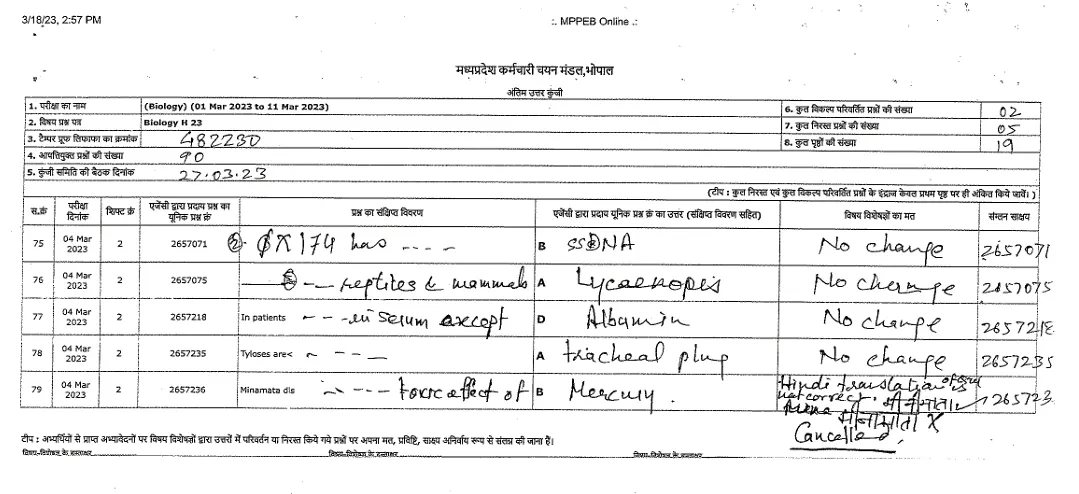 3/18/23, 2:57 PM
:. MPPEB Online .:
मध्यप्रदेश कर्मचारी चयन मंडल,भोपाल
अंतिम उत्तर कुंजी
1. परीक्षा का नाम (Biology) (01 Mar 2023 to 11 Mar 2023) 6. कुल विकल्प परिवर्तित प्रश्नों की संख्या 02
2. विषय प्रश्न पत्र Biology H 23 7. कुल निरस्त प्रश्नों की संख्या 05
3. टैम्पर प्रूफ लिफाफा का क्रमांक 482230 8. कुल पृष्ठों की संख्या 19
4. आपत्तियुक्त प्रश्नों की संख्या 90
5. कुंजी समिति की बैठक दिनांक 27.03.23
(टीप : कुल निरस्त एवं कुल विकल्प परिवर्तित प्रश्नों के इंद्राज केवल प्रथम पृष्ठ पर ही अंकित किये जावें। )
स.क्रं परीक्षा दिनांक शिफ्ट क्रं एजेंसी द्वारा प्रदाय प्रश्न का यूनिक प्रश्न क्रं प्रश्न का संक्षिप्त विवरण एजेंसी द्वारा प्रदाय यूनिक प्रश्न क्रं का उत्तर (संक्षिप्त विवरण सहित) विषय विशेषज्ञों का मत संलग्न साक्ष्य
75 04 Mar 2023 2 2657071 ϕX174 has ---- B ssDNA No change 2657071
76 04 Mar 2023 2 2657075 -- reptiles & mammals A Lycaenopis No change 2657075
77 04 Mar 2023 2 2657218 In patients --- in serum except D Albumin No change 2657218
78 04 Mar 2023 2 2657235 Tyloses are< ---- A tracheal plug No change 2657235
79 04 Mar 2023 2 2657236 Minamata dis ---- toxic effect of B Mercury. Hindi translation of is
not correct. मीनीमाता 265723
मीनामाता X
Cancelled.
टीप : अभ्यर्थियों से प्राप्त अभ्यावेदनों पर विषय विशेषज्ञों द्वारा उत्तरों में परिवर्तन या निरस्त किये गये प्रश्नों पर अपना मत, प्रविष्टि, साक्ष्य अनिवार्य रूप से संलग्न की जाना हैं।
विषय-विशेषज्ञ के हस्ताक्षर विषय-विशेषज्ञ के हस्ताक्षर विषय-विशेषज्ञ के हस्ताक्षर